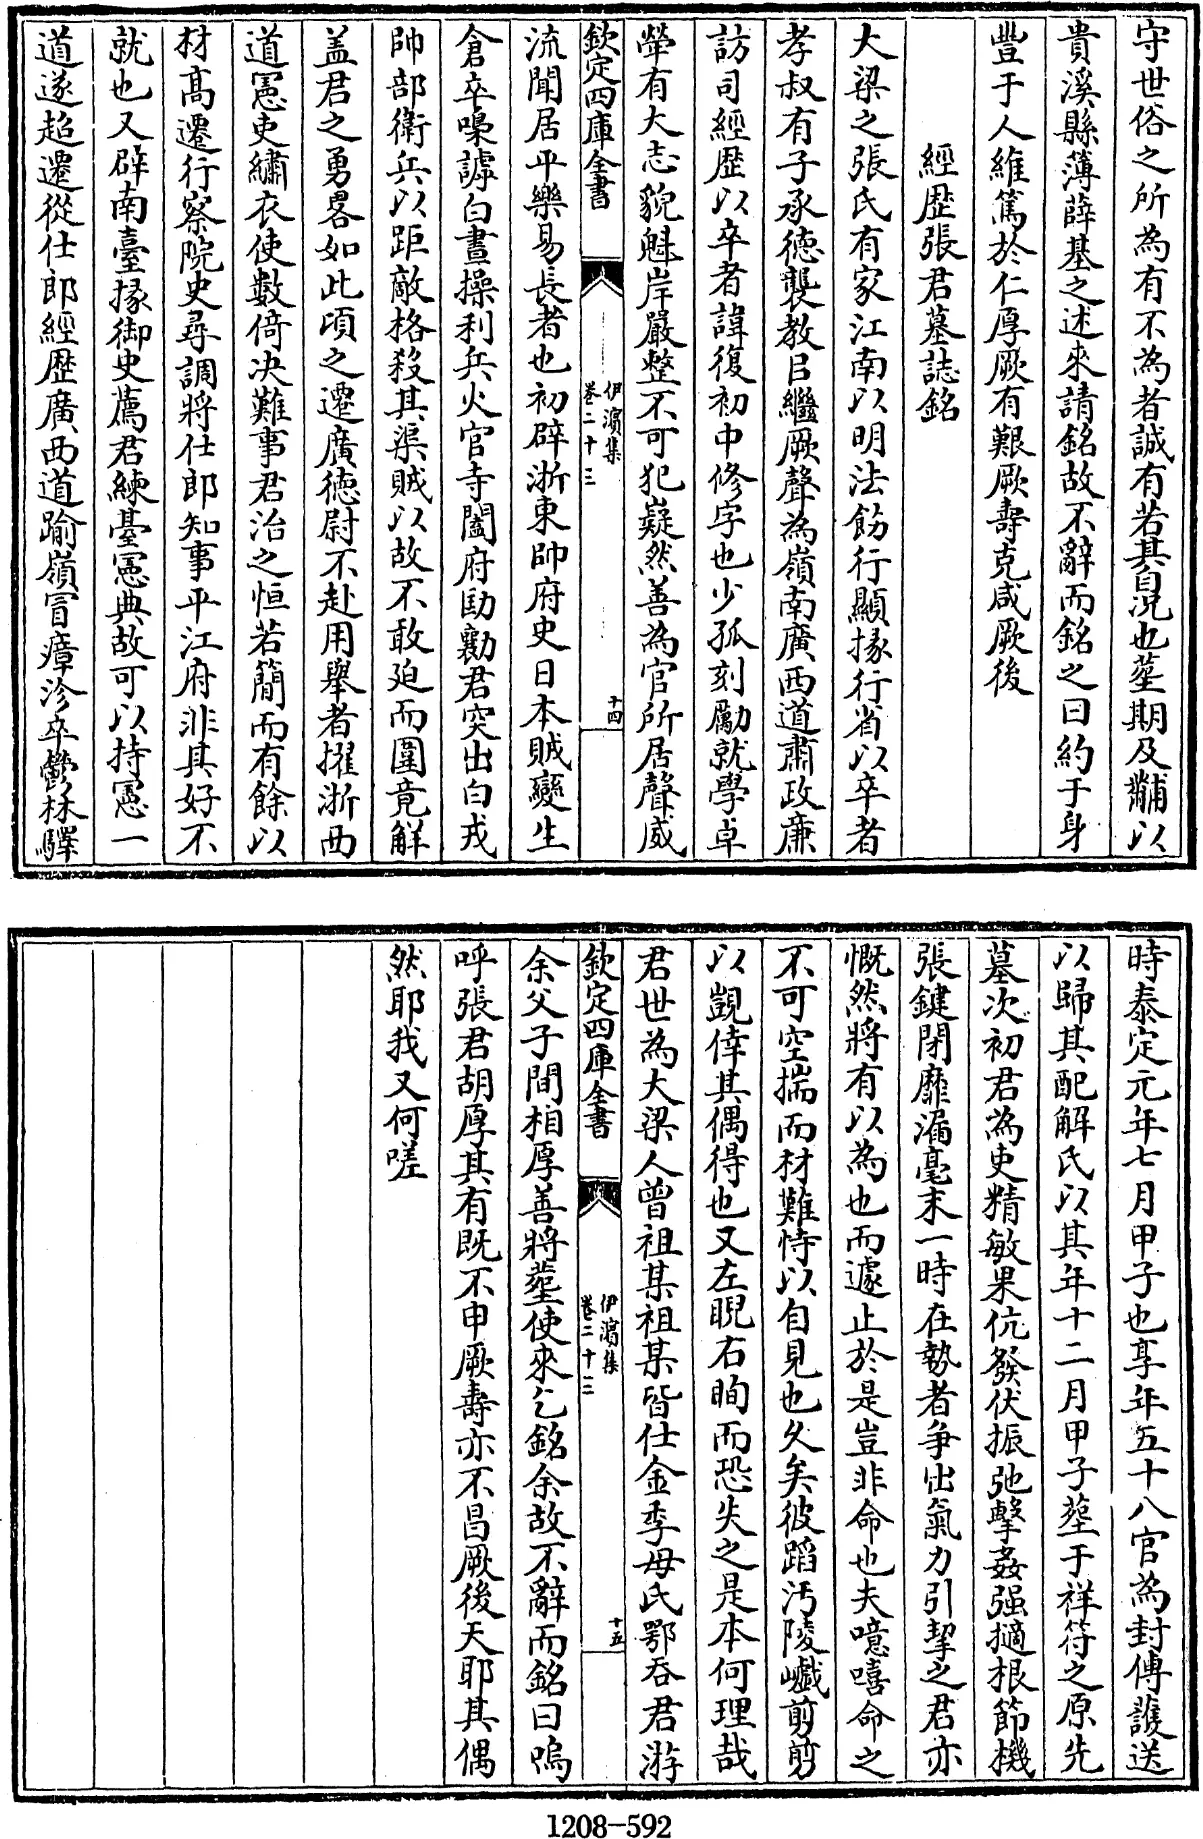 守世俗之所為有不為者誠有若其自况也塟期及黼以
貴溪縣簿薛基之述來請銘故不辭而銘之曰約于身
豐于人維篤於仁厚厥有艱厥壽克咸厥後
經歷張君墓誌銘
大梁之張氏有家江南以明法飭行顯掾行省以卒者
孝叔有子承德襲教曰繼厥聲為嶺南廣西道肅政廉
訪司經歷以卒者諱復初中修字也少孤刻勵就學卓
犖有大志貌魁岸嚴整不可犯嶷然善為官所居聲威
欽定四庫全書
伊濱集
卷二十三
十四
流聞居平樂易長者也初辟浙東帥府史日本賊變生
倉卒嘄謼白晝操利兵火官寺闔府劻勷君突出白戎
帥部衛兵以距敵格殺其渠賊以故不敢廹而圍竟解
盖君之勇畧如此頃之遷廣德尉不赴用舉者擢浙西
道憲吏繡衣使數倚决難事君治之恒若簡而有餘以
材髙遷行察院史尋調將仕郎知事平江府非其好不
就也又辟南臺掾御史薦君練臺憲典故可以持憲一
道遂超遷從仕郎經歷廣西道踰嶺冒瘴沴卒鬱林驛
時泰定元年七月甲子也享年五十八官為封傳護送
以歸其配解氏以其年十二月甲子塟于祥符之原先
墓次初君為吏精敏果伉發伏振弛擊姦强擿根節機
張鍵閉靡漏毫末一時在勢者爭出氣力引挈之君亦
慨然將有以為也而遽止於是豈非命也夫噫嘻命之
不可空揣而材難恃以自見也久矣彼蹈汚陵巇剪剪
以覬倖其偶得也又左睨右眴而恐失之是本何理哉
君世為大梁人曾祖某祖某皆仕金季母氏鄂呑君游
欽定四庫全書
伊濱集
卷二十三
十五
余父子間相厚善將塟使來乞銘余故不辭而銘曰嗚
呼張君胡厚其有既不申厥壽亦不昌厥後天耶其偶
然耶我又何嗟
1208-592